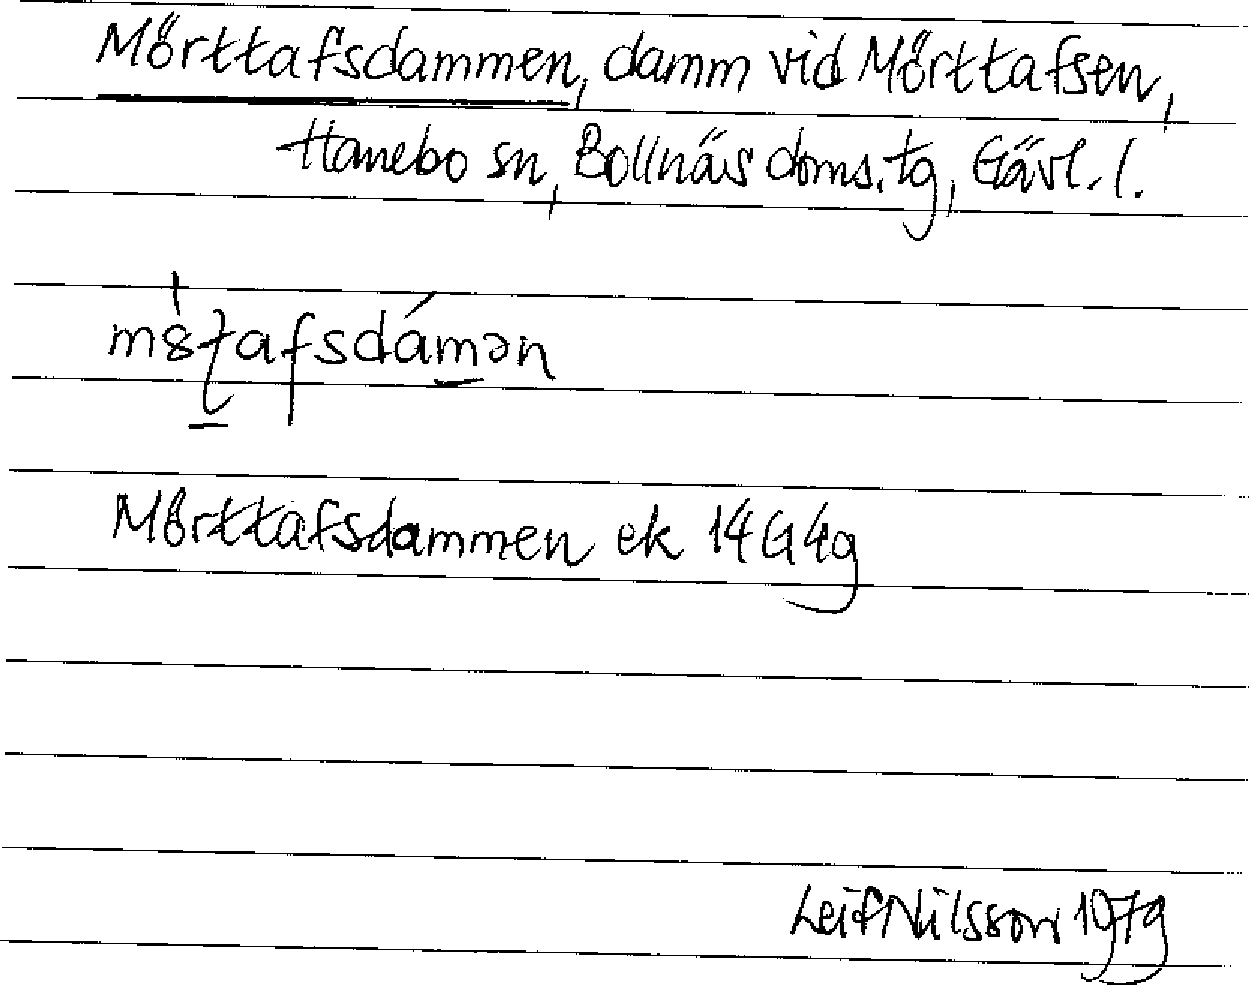 Mörttafsdammen, damm vid Mörttafsen,
Hanebo sn, Bollnäs doms.tg, Gävl. l.
Mörttafsdammen ek 14G4g
Leif Nilsson 1979